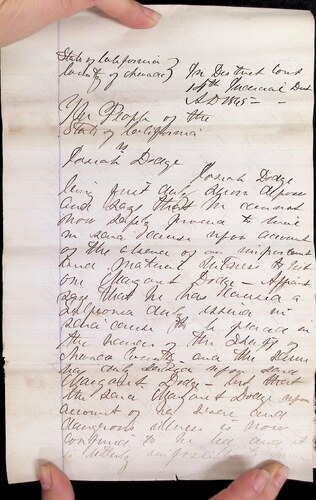 State of California
County of Nevada
In District Court
14th Judicial Dist
AD 1865 -
The People of the
State of California
vs
Josiah Dodge
Josiah Dodge
being first duly sworn deposes
and says that he cannot
now safely proceed to trial
in said cause upon account
of the absence of an important
and material witness to wit
one Margaret Dodge - Affiant
says that he has caused a
subpoena duly issued in
said cause to be placed in
the hands of the Sheriff of
County - and the same
was duly served upon said
Margaret Dodge - but that
the said Margaret Dodge upon
account of her severe and
dangerous illness is now
confined to her bed and it
is utterly impossible